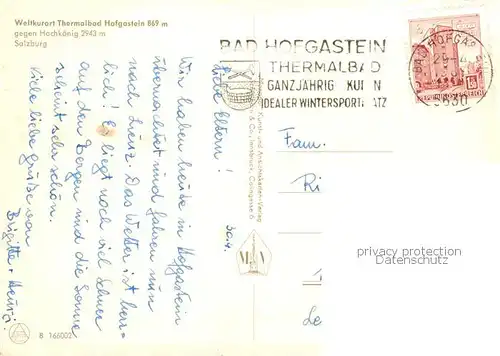 Weltkurort Thermalbad Hofgastein 869 m
gegen Hochkönig 2943 m
Salzburg
BAD HOFGASTEIN
THERMALBAD
GANZJÄHRIG KUREN
IDEALER WINTERSPORTPLATZ
BAD HOFGA
5630
REPUBLIK ÖSTERREICH
30.4.
Liebe Eltern!
Wir haben heute in Hofgastein
übernachtet und fahren nun
nach Lienz. Das Wetter ist herr-
lich! Es liegt noch viel Schnee
auf den Bergen und die Sonne
scheint sehr schön.
Viele liebe Grüße von
Brigitte + Heinzi.
Kunst- und Ansichtskarten-Verlag
Innsbruck,
Fam.
Ri
Le
privacy protection
Datenschutz
B 166002